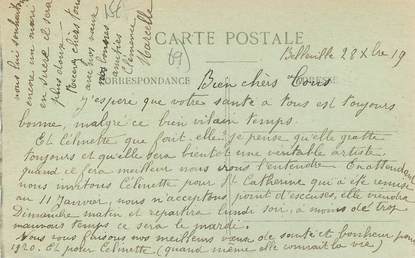 CARTE POSTALE
CORRESPONDANCE
Belleville 28 Xbre 19
Bien chèrs Tous
J'espère que votre santé à tous est toujours
bonne, malgré ce bien vilain temps.
Et Célinette que fait-elle je pense qu'elle gratte
toujours et qu'elle sera bientot une véritable artiste
quand ce fera meilleur nous irons l'entendre. En attendant
nous invitons Célinette pour Ste Catherine qui a été remise
au 11 Janvier, nous n'acceptons point d'excuses, elle viendra
Dimanche matin et repartira lundi soir, à moins de trop
mauvais temps ce sera le mardi.
Nous vous faisons nos meilleurs vœux de santé et bonheur pour
1920. Et pour Célinette (quand même elle connait la vie)
nous lui souhaitons
encore un mari
ce sera
plus doux
Recevez chèrs tous
avec nos vœux
nos bonnes
amitiés
Clémence
Marcelle